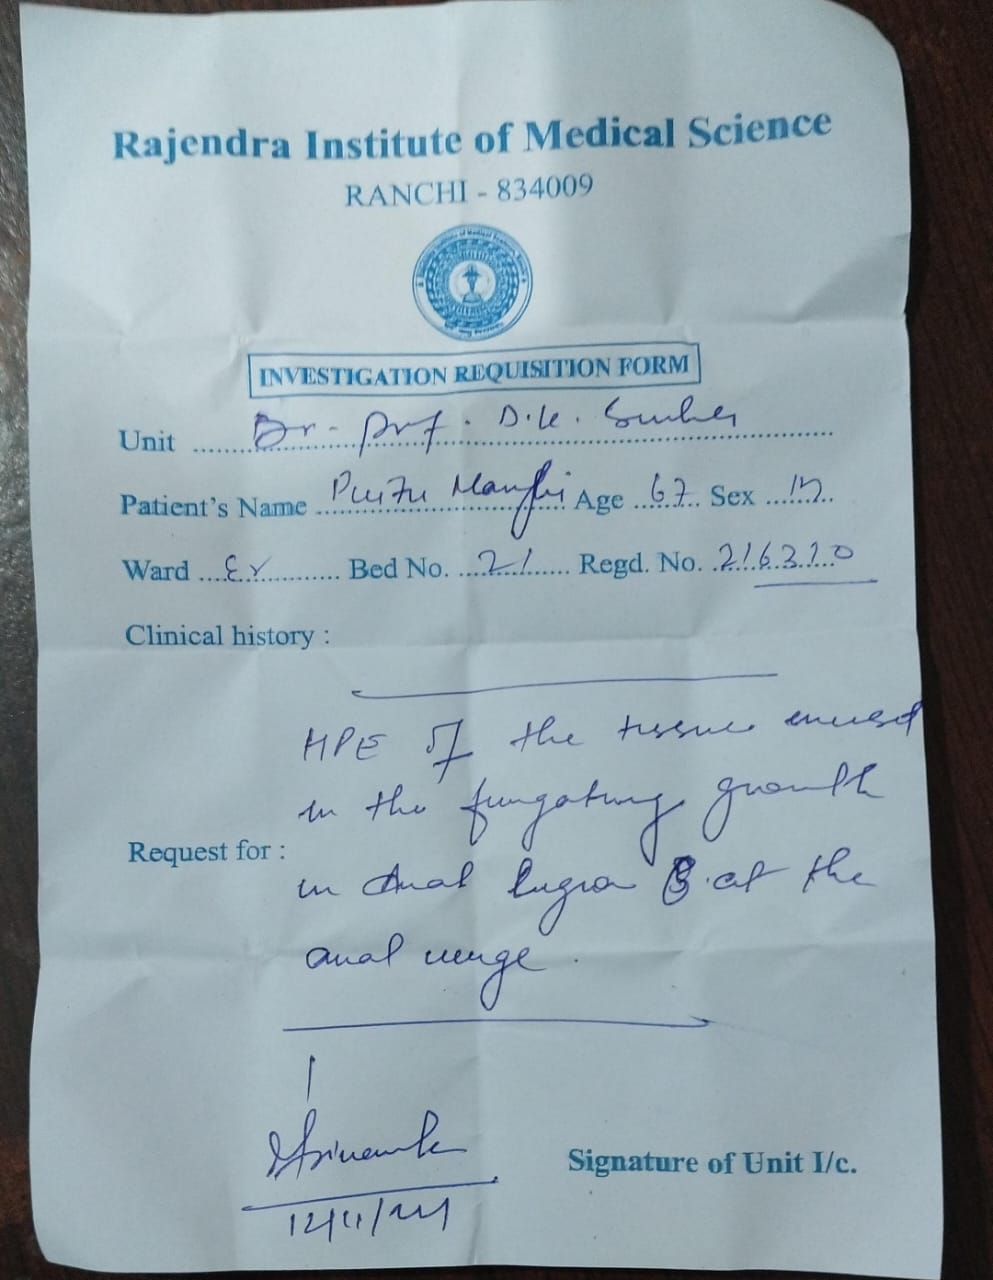 Rajendra Institute of Medical Science
RANCHI - 834009
INVESTIGATION REQUISITION FORM
Unit Dr. Prof. D.K. Sinha
Patient's Name Age 67 Sex M
Ward Bed No. 21 Regd. No. 216310
Clinical history :
HPE of the tissue
in the fungating growth
Request for :
in Anal region at the
anal verge.
12/11/24
Signature of Unit I/c.